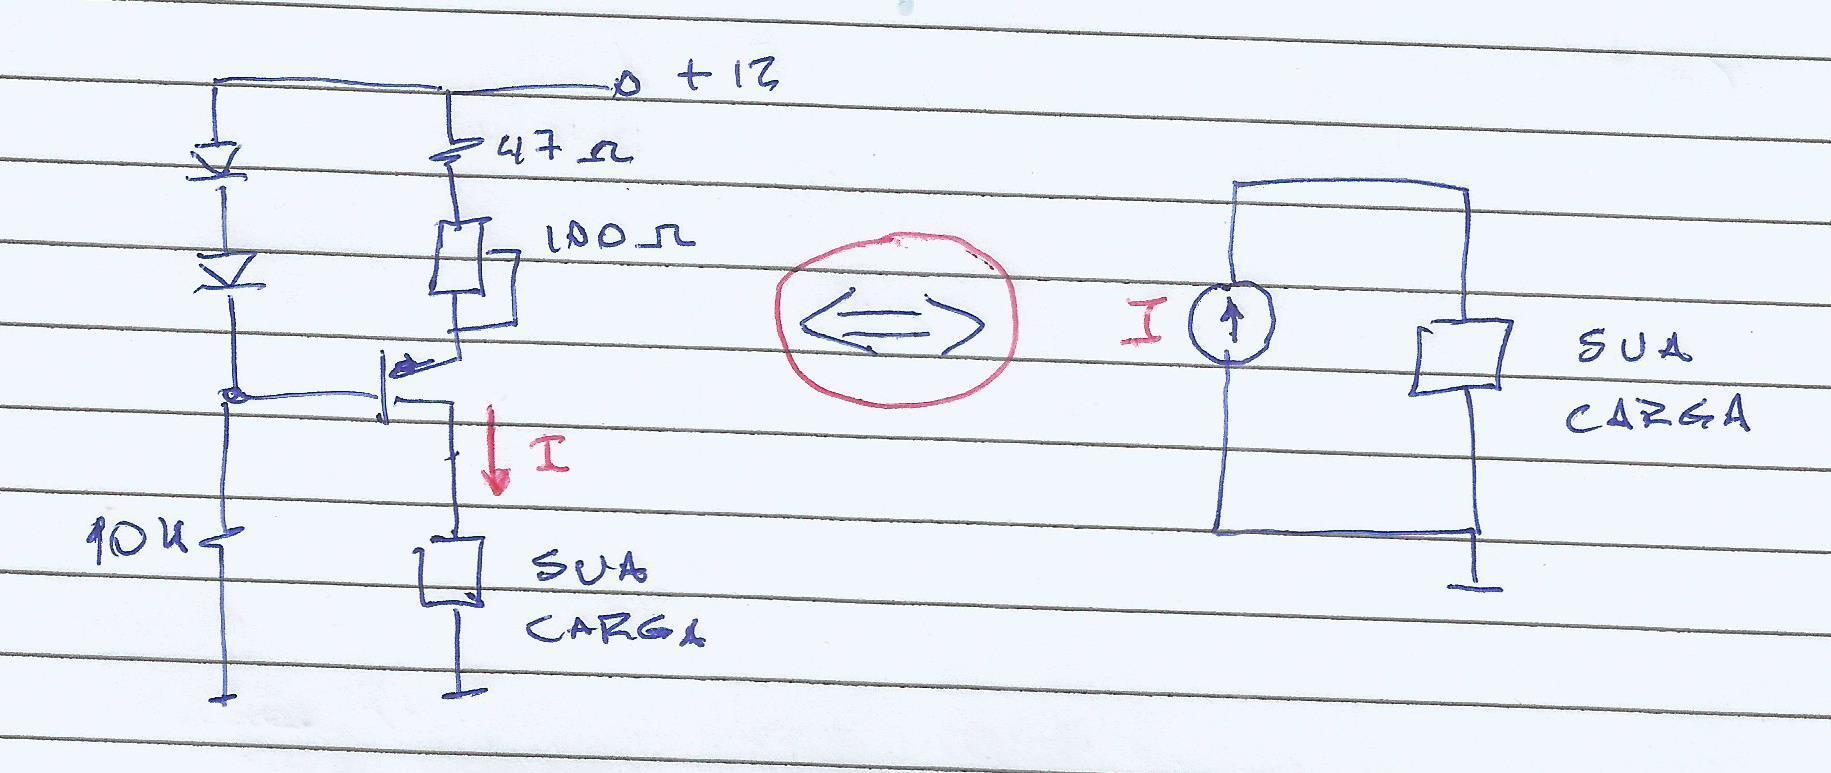 + 12
47 Ω
100 Ω
I
I
10K
SUA
CARGA
SUA
CARGA